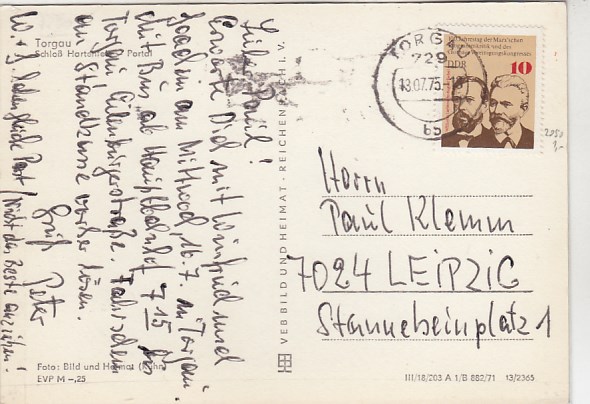 Torgau
Schloß Hartenfels, Portal
Lieber Paul!
Erwarte Dich mit Winfried und
Joachim am Mittwoch, 16.7. in Torgau.
Mit Bus, ab Hauptbahnhof 7 15 bis
Torgau Eilenburgerstraße. Fahrschein
an Standkasse vorher lösen.
Gruß Peter
W. + J. haben
nicht das Beste anziehen!
Foto: Bild und Heimat
EVP M –,25
VEB BILD UND HEIMAT · REICHENBACH I. V.
TORGAU
729
13.07.75-18
DDR
10
2050
Herrn
Paul Klemm
7024 LEIPZIG
Stannebeinplatz 1
III/18/203 A 1/B 882/71 13/2365